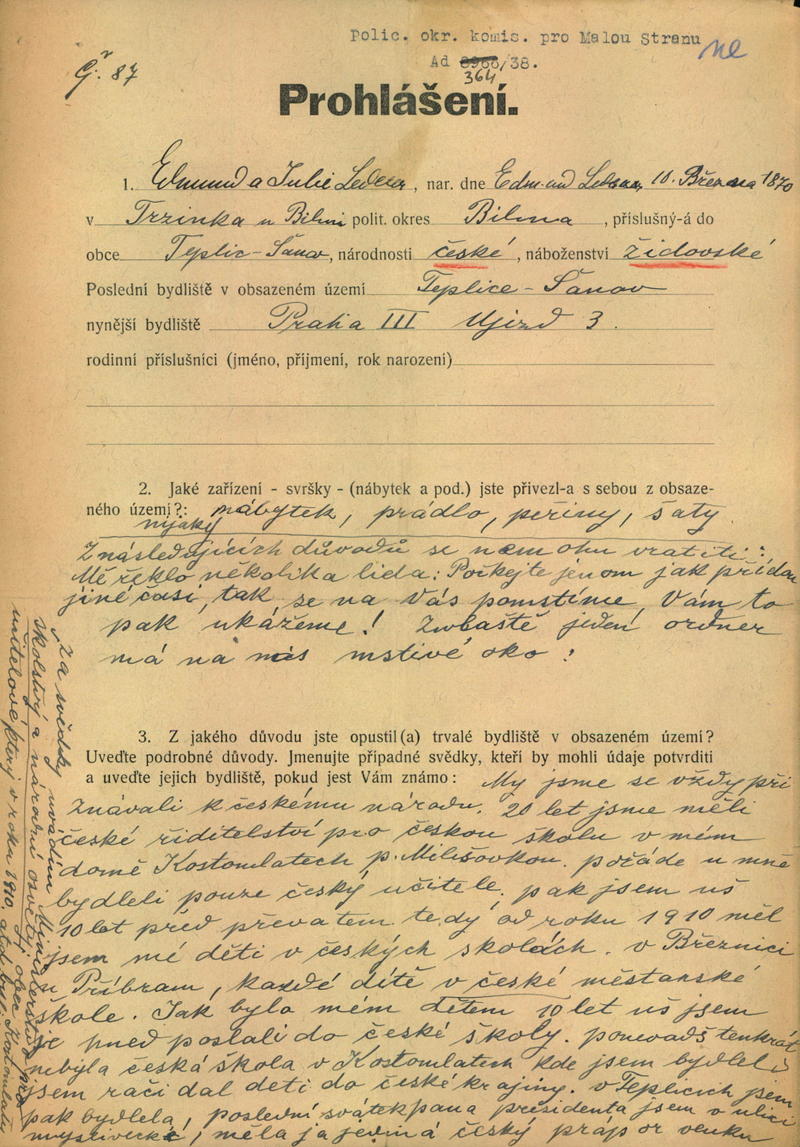 Polic. okr. komis. pro Malou Stranu
Ad 8966/38.
364
Č. 87
Prohlášení.
1. Edmund a Julie Lederer, nar. dne Edmund Lederer, 10. Března 1870
v Trzinka u Bíliny polit. okres Bilina, příslušný-á do
obce Teplic-Šanov, národnosti české, náboženství židovské
Poslední bydliště v obsazeném území Teplice-Šanov
nynější bydliště Praha III Ujezd 3.
rodinní příslušníci (jméno, příjmení, rok narození)
2. Jaké zařízení - svršky - (nábytek a pod.) jste přivezl-a s sebou z obsaze-
ného území?: nábytek, prádlo, peřiny, šaty
nějaký
Z následujících důvodů se nemohu vratiti:
Mě řeklo několika lida: Počkejte jenom jak přídou
jiné časi, tak se na Vás pomstíme, Vám to
pak ukážeme! Zvlaště jeden ordner
má na nás mstivé oko!
3. Z jakého důvodu jste opustil(a) trvalé bydliště v obsazeném území?
Uveďte podrobné důvody. Jmenujte případné svědky, kteří by mohli údaje potvrditi
a uveďte jejich bydliště, pokud jest Vám známo: My jsme se vždy při
znávali k českému národu. 20 let jsme měli
české řiditelství pro českou školu v mém
domě Kostomlatech p. Milišovkou. počáde u mně
bydleli pouze český učitele. pak jsem uš
10 let před převatem tedy od roku 1910 měl
jsem mé děti v českých školách. v Březnici
u Příbram, každé dítě v české městanské
škole. Jak bylo mém dětem 10 let uš jsem
je hned poslali do české školy. poněvadš tenkrát
nebyla česká škola v Kostomlatech kde jsem bydlel
jsem rači dal děti do české krajiny. v Teplicích jsem
pak bydlela, poslední svátek pana presidenta jsem v ulici
myslivecké, měla ja jediná český prápor venku
Za svědky uvádím Ministerstvo
školství a národní osvěty
učitelové který v roku 1910.